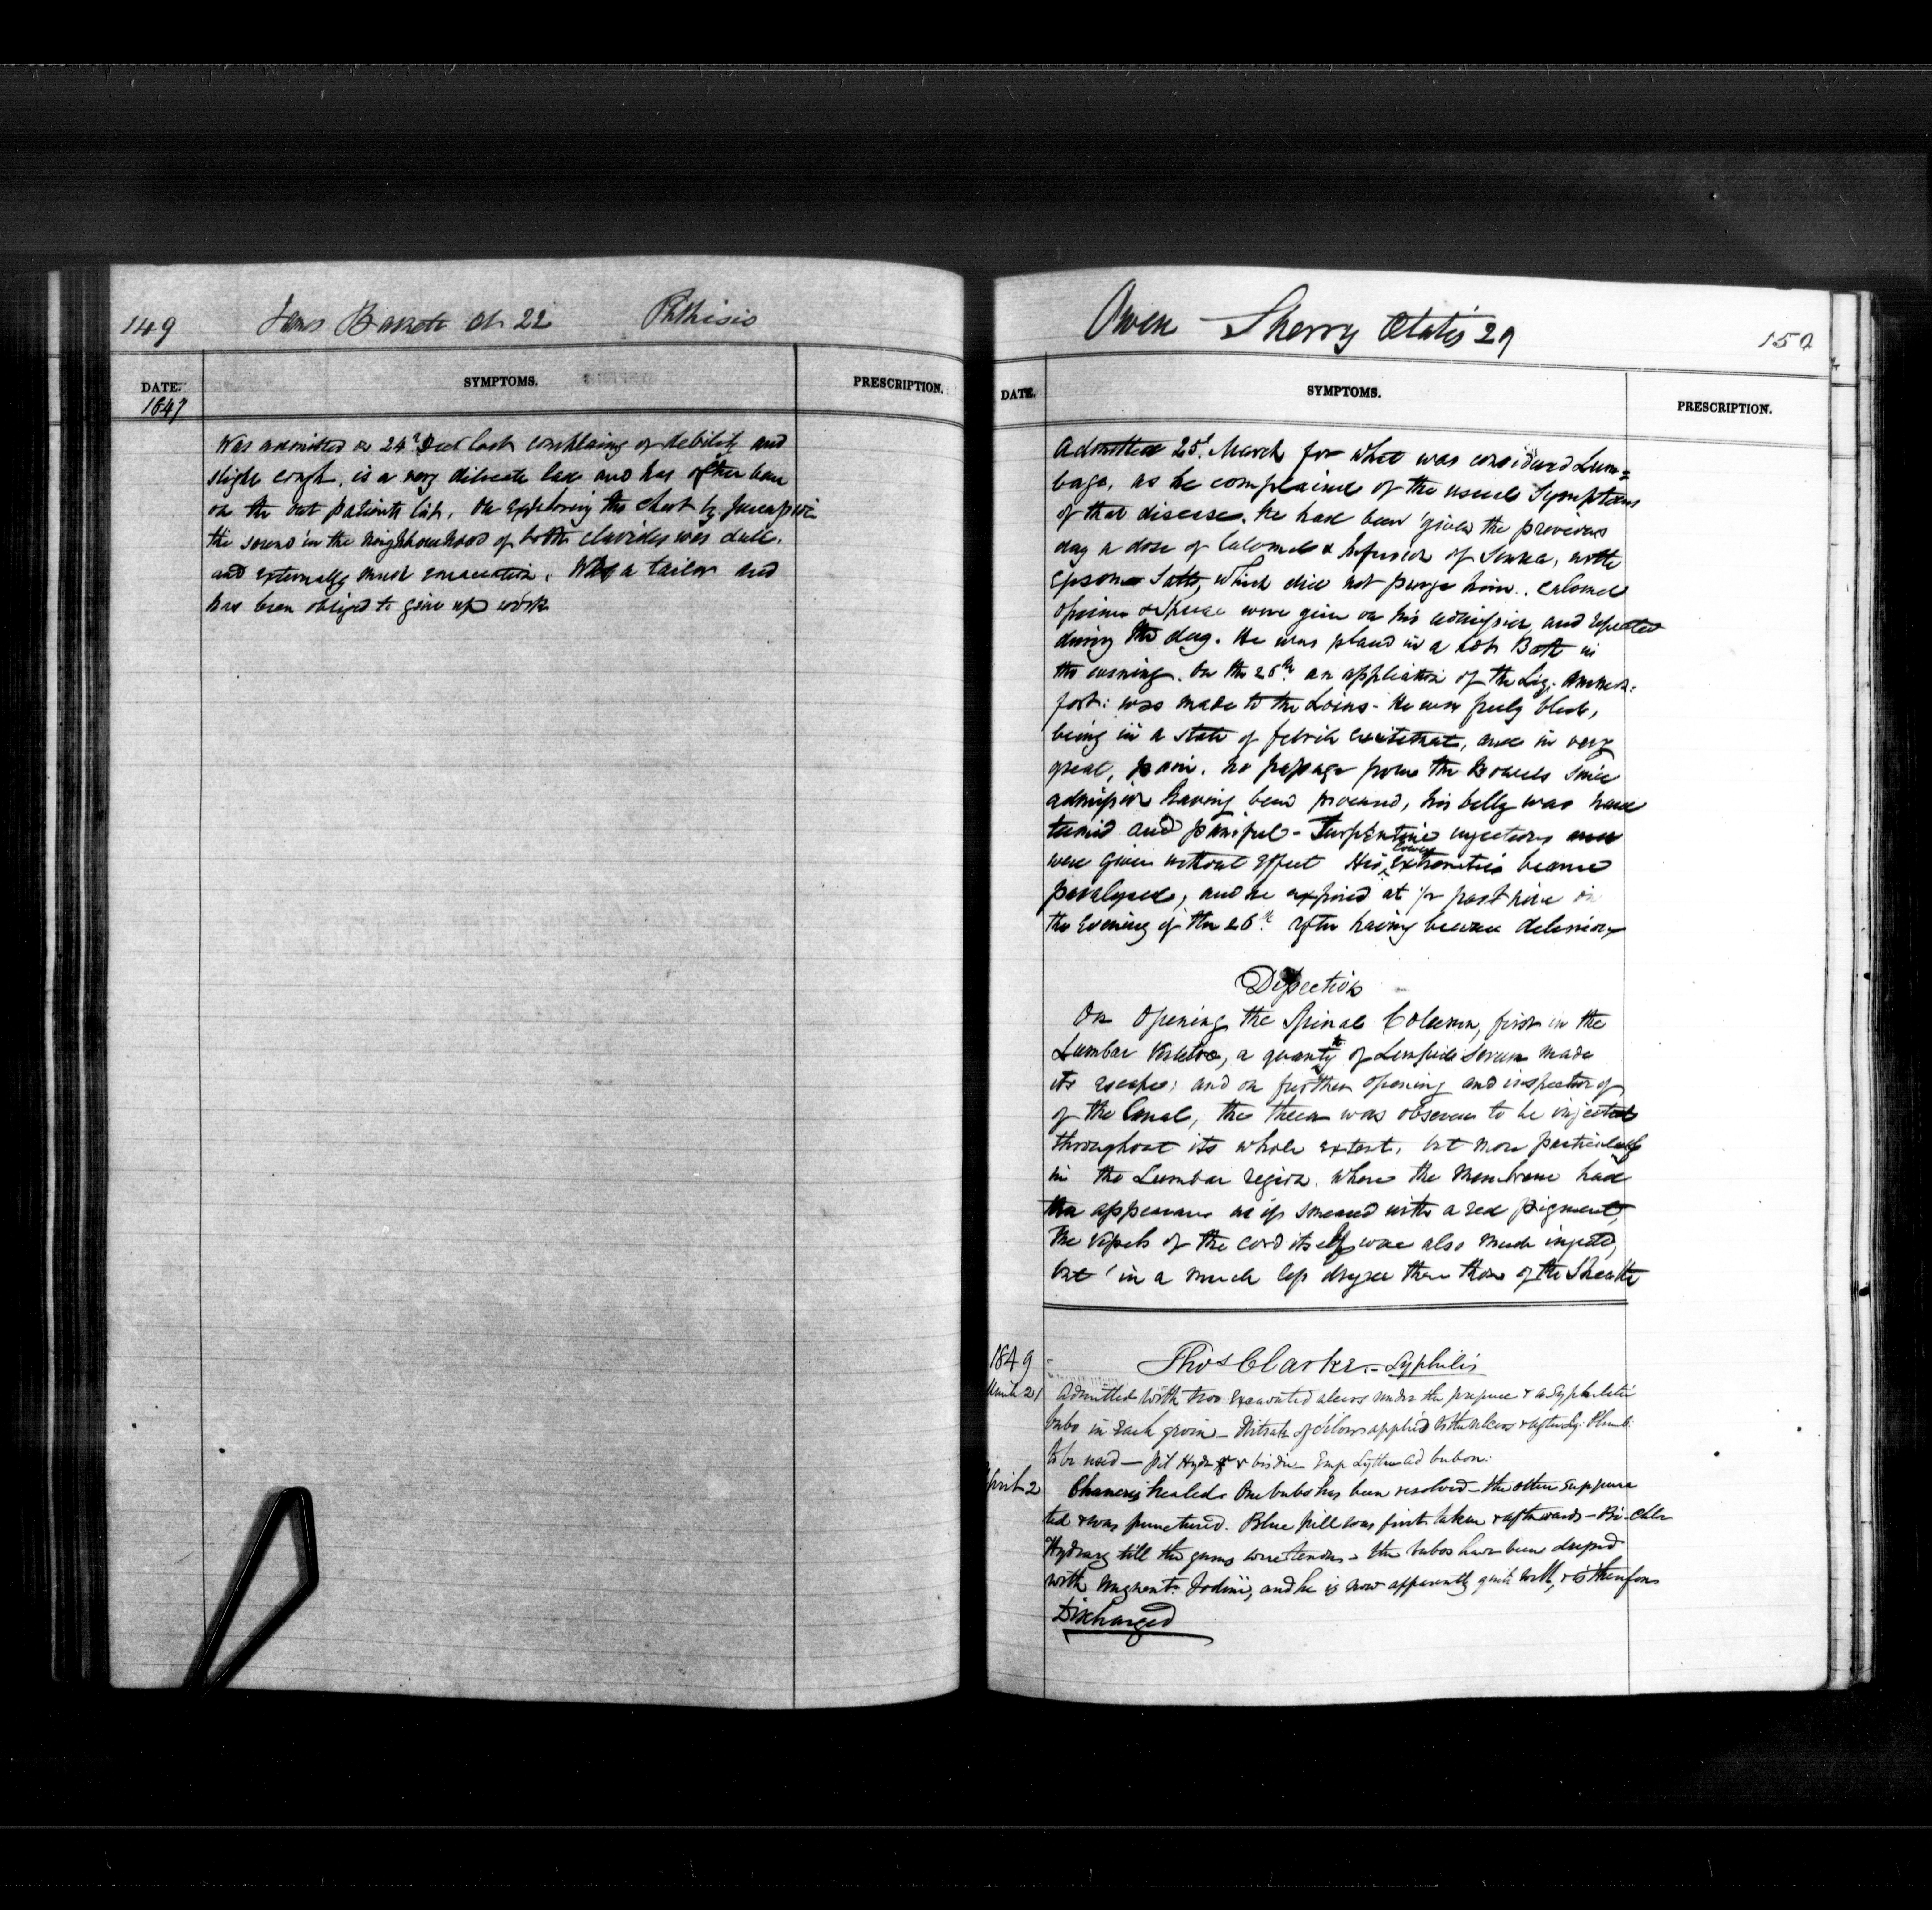 149
James Barrett Æt 22 Phthisis
DATE. SYMPTOMS. PRESCRIPTION.
1847
Was admitted on 24th Dect last complaing of debility and
slight cough, is a very dilicate lad and has often been
on the out patients list. On exploring the chest by percussion
the sound in the neighbourhood of both clavicles was dull.
and externally much emaciation. Was a tailor and
has been obliged to give up work
Owen Sherry Ætatis 29
150
DATE. SYMPTOMS. PRESCRIPTION.
Admitted 25t. March for what was considered Lum=
bago, as he complained of the usual Symptoms
of that disease. He had been given the previous
day a dose of Calomel & Infusion of Senna, with
Epsom Salts, which did not purge him. Calomel
Opium & were given on his admission, and repeated
during the day. He was placed in a Hot Bath in
the evening. On the 26th an application of the Liq. Ammon:
fort: was made to the Loins - He was freely bled,
being in a state of febrile excitement, and in very
great, pain. No passage from the Bowels since
admission having been procured, his belly was hard
tumid and painful - Turpentine injections
were given without effect His lower extremities became
paralysed, and he expired at ½ past nine in
the Evening of the 26th. after having become delirious
Dissection
On Opening the Spinal Column, first in the
Lumbar Vertebræ, a quantity of Limpid Serum made
its escape; and on further opening and inspection of
of the Canal, the theca was observed to be injected
throughout its whole extent, but more particularly
in the Lumbar region. where the Membrane had
the appearance as if smeared with a red pigment,
The Vessels of the cord itself were also much injected,
but in a much less degree than those of the Sheath
1849
Thos Clarke. - Syphilis
March 21 Admitted with two excavated ulcers under the prepuce & a Syphilitic
bubo in each groin - Nitrate of Silver applied to the ulcers & after Liq. Plumb.
to be used - Pil Hydr gr v bis die - Emp Lyttae ad bubon.
April 2 Chancres healed. One bubo has been resolved - the other suppura
ted & was punctured. Blue pill was first taken & afterwards - Bi-Chlor
Hydrarg till the gums were tender - the bubos have been dressed
with Unguent: Iodinii, and he is now apparently quite well, & is therefore
Discharged